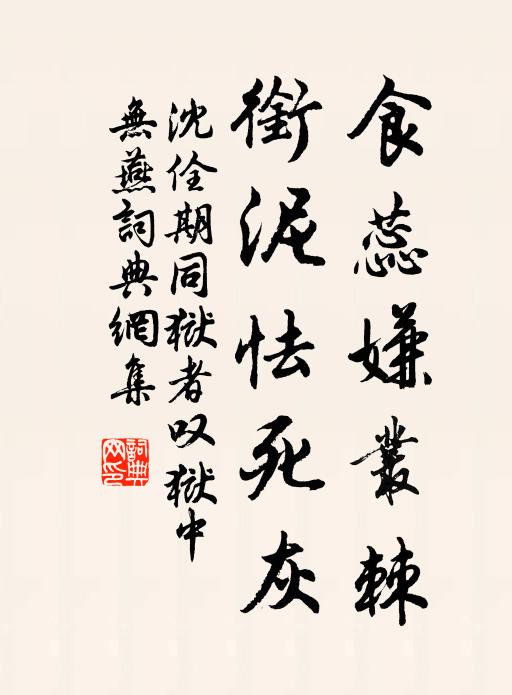 食蕊嫌叢棘
銜泥怯死灰
沈佺期同獄者叹獄中
無燕詞典網集
詞典網印